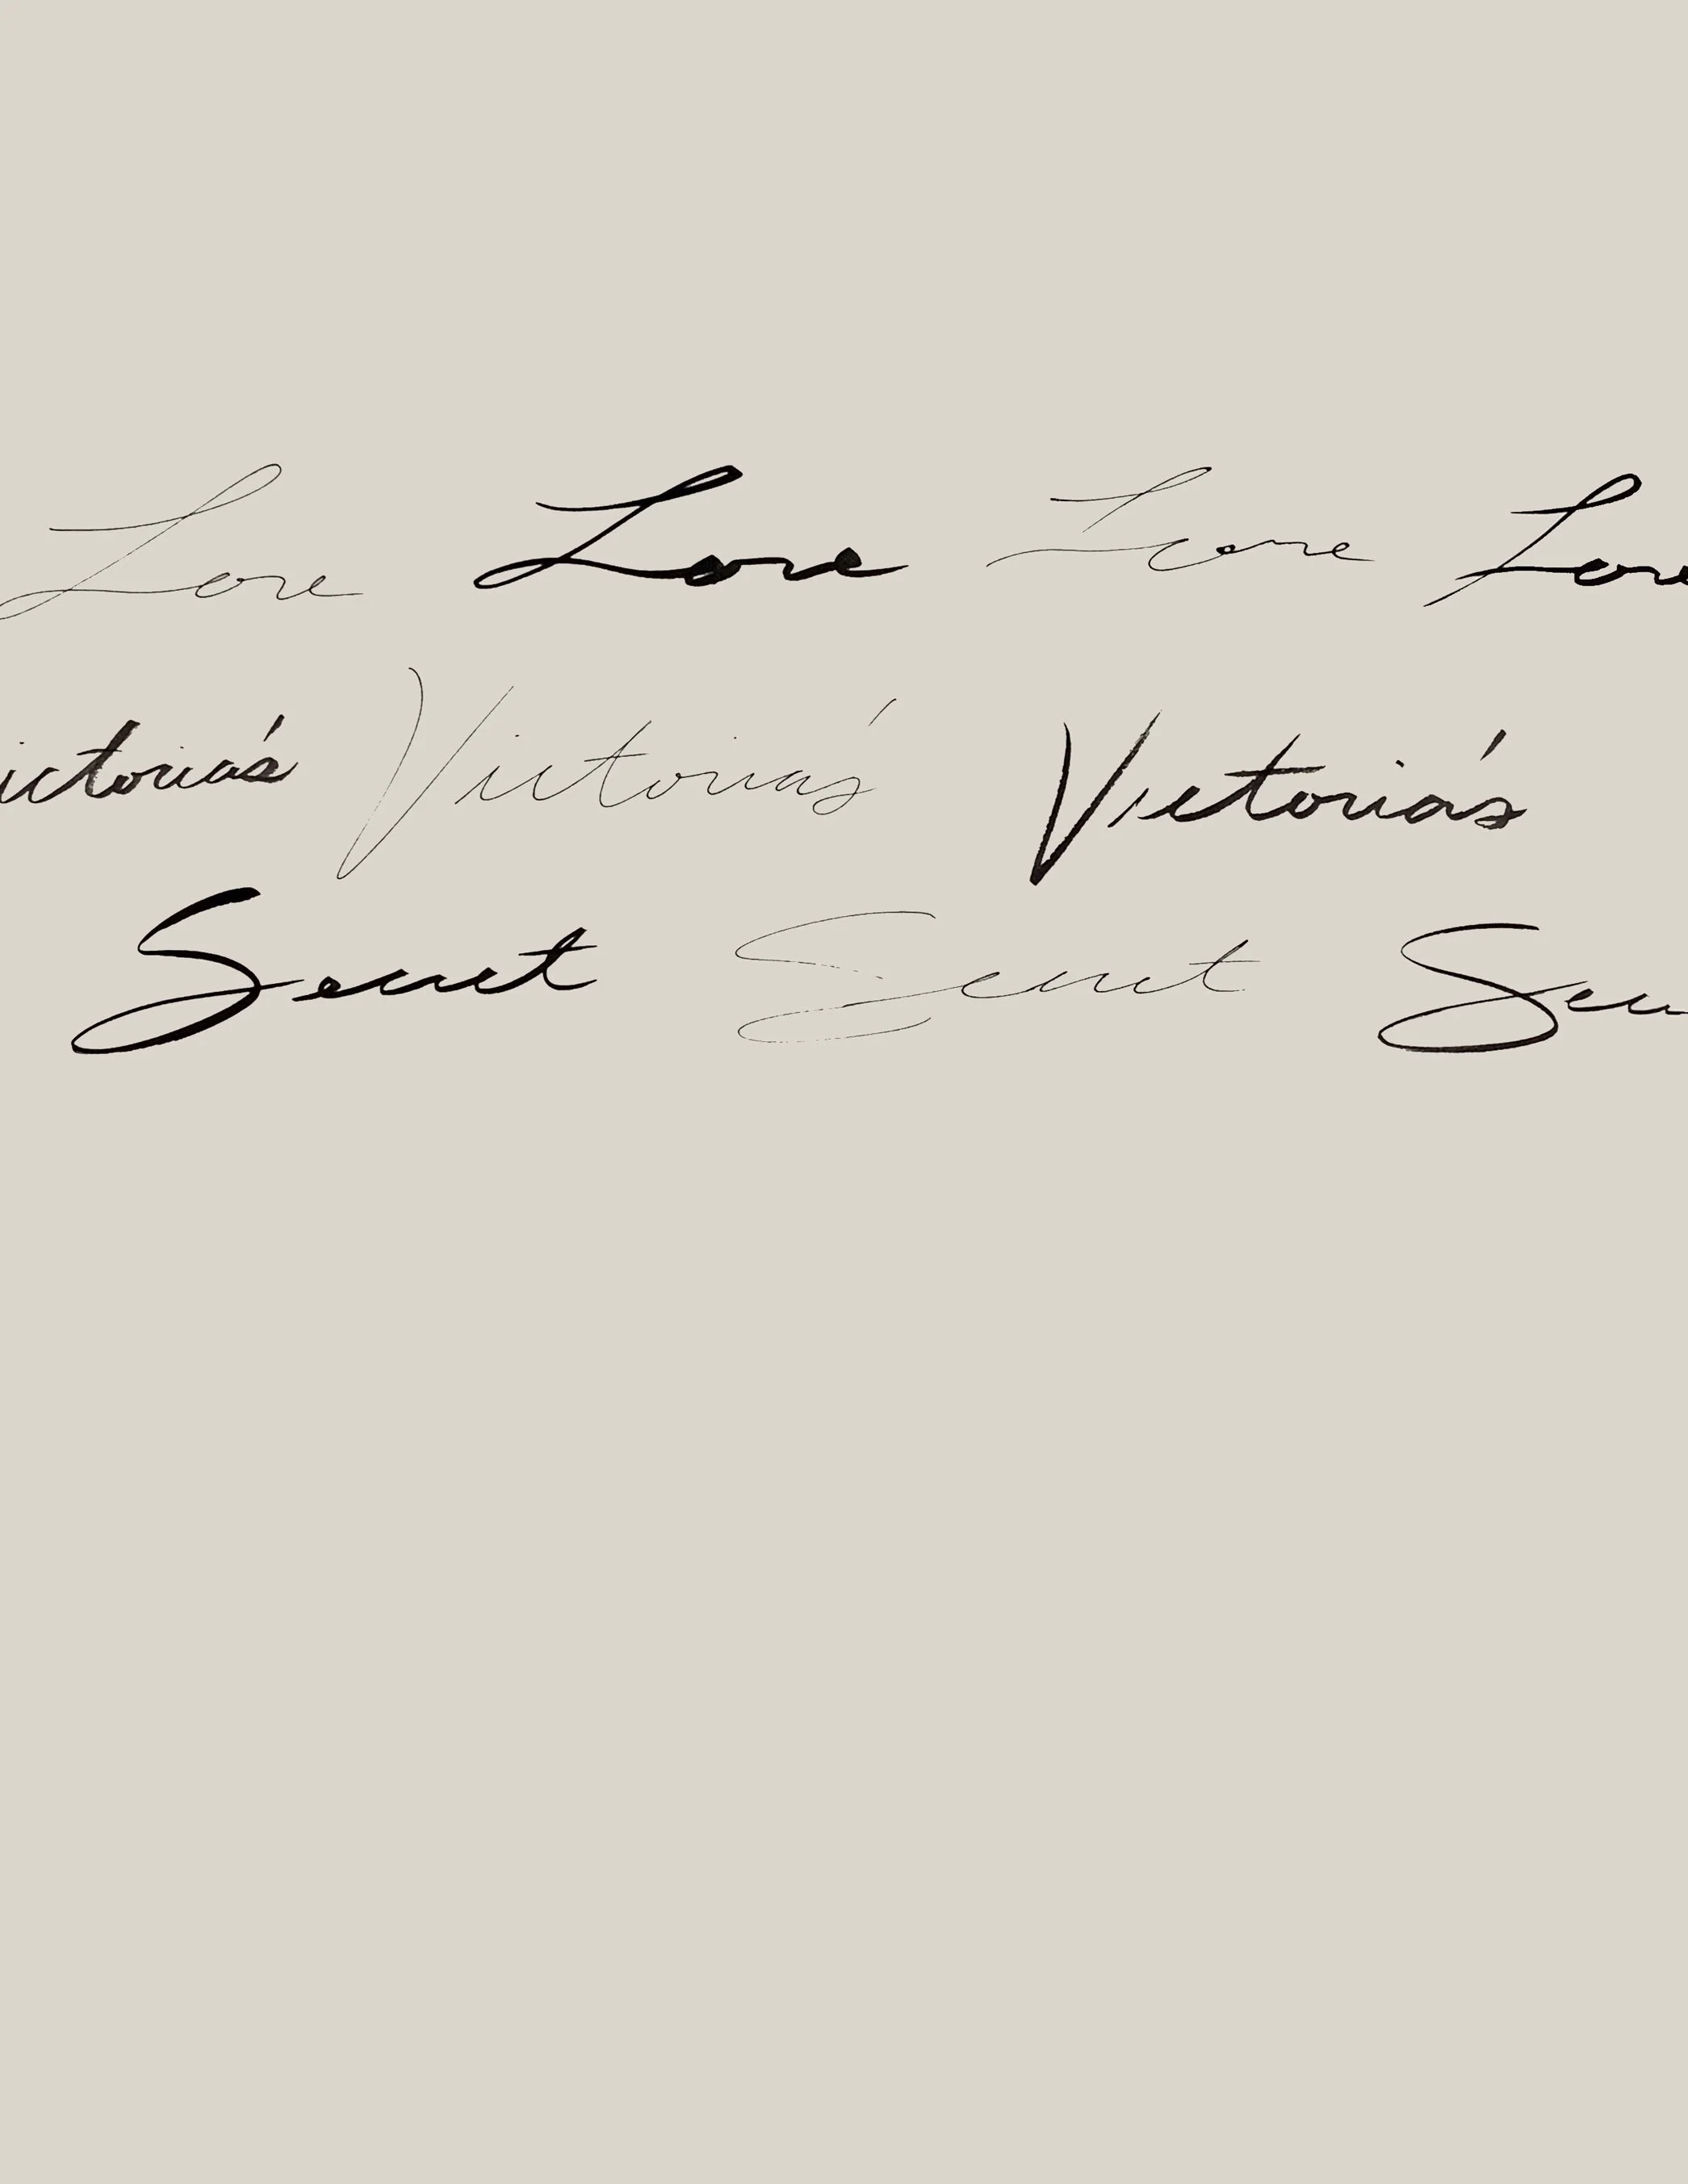 Love Love Love Lov
ictoria's Victoria's Victoria's
Secret Secret Secr